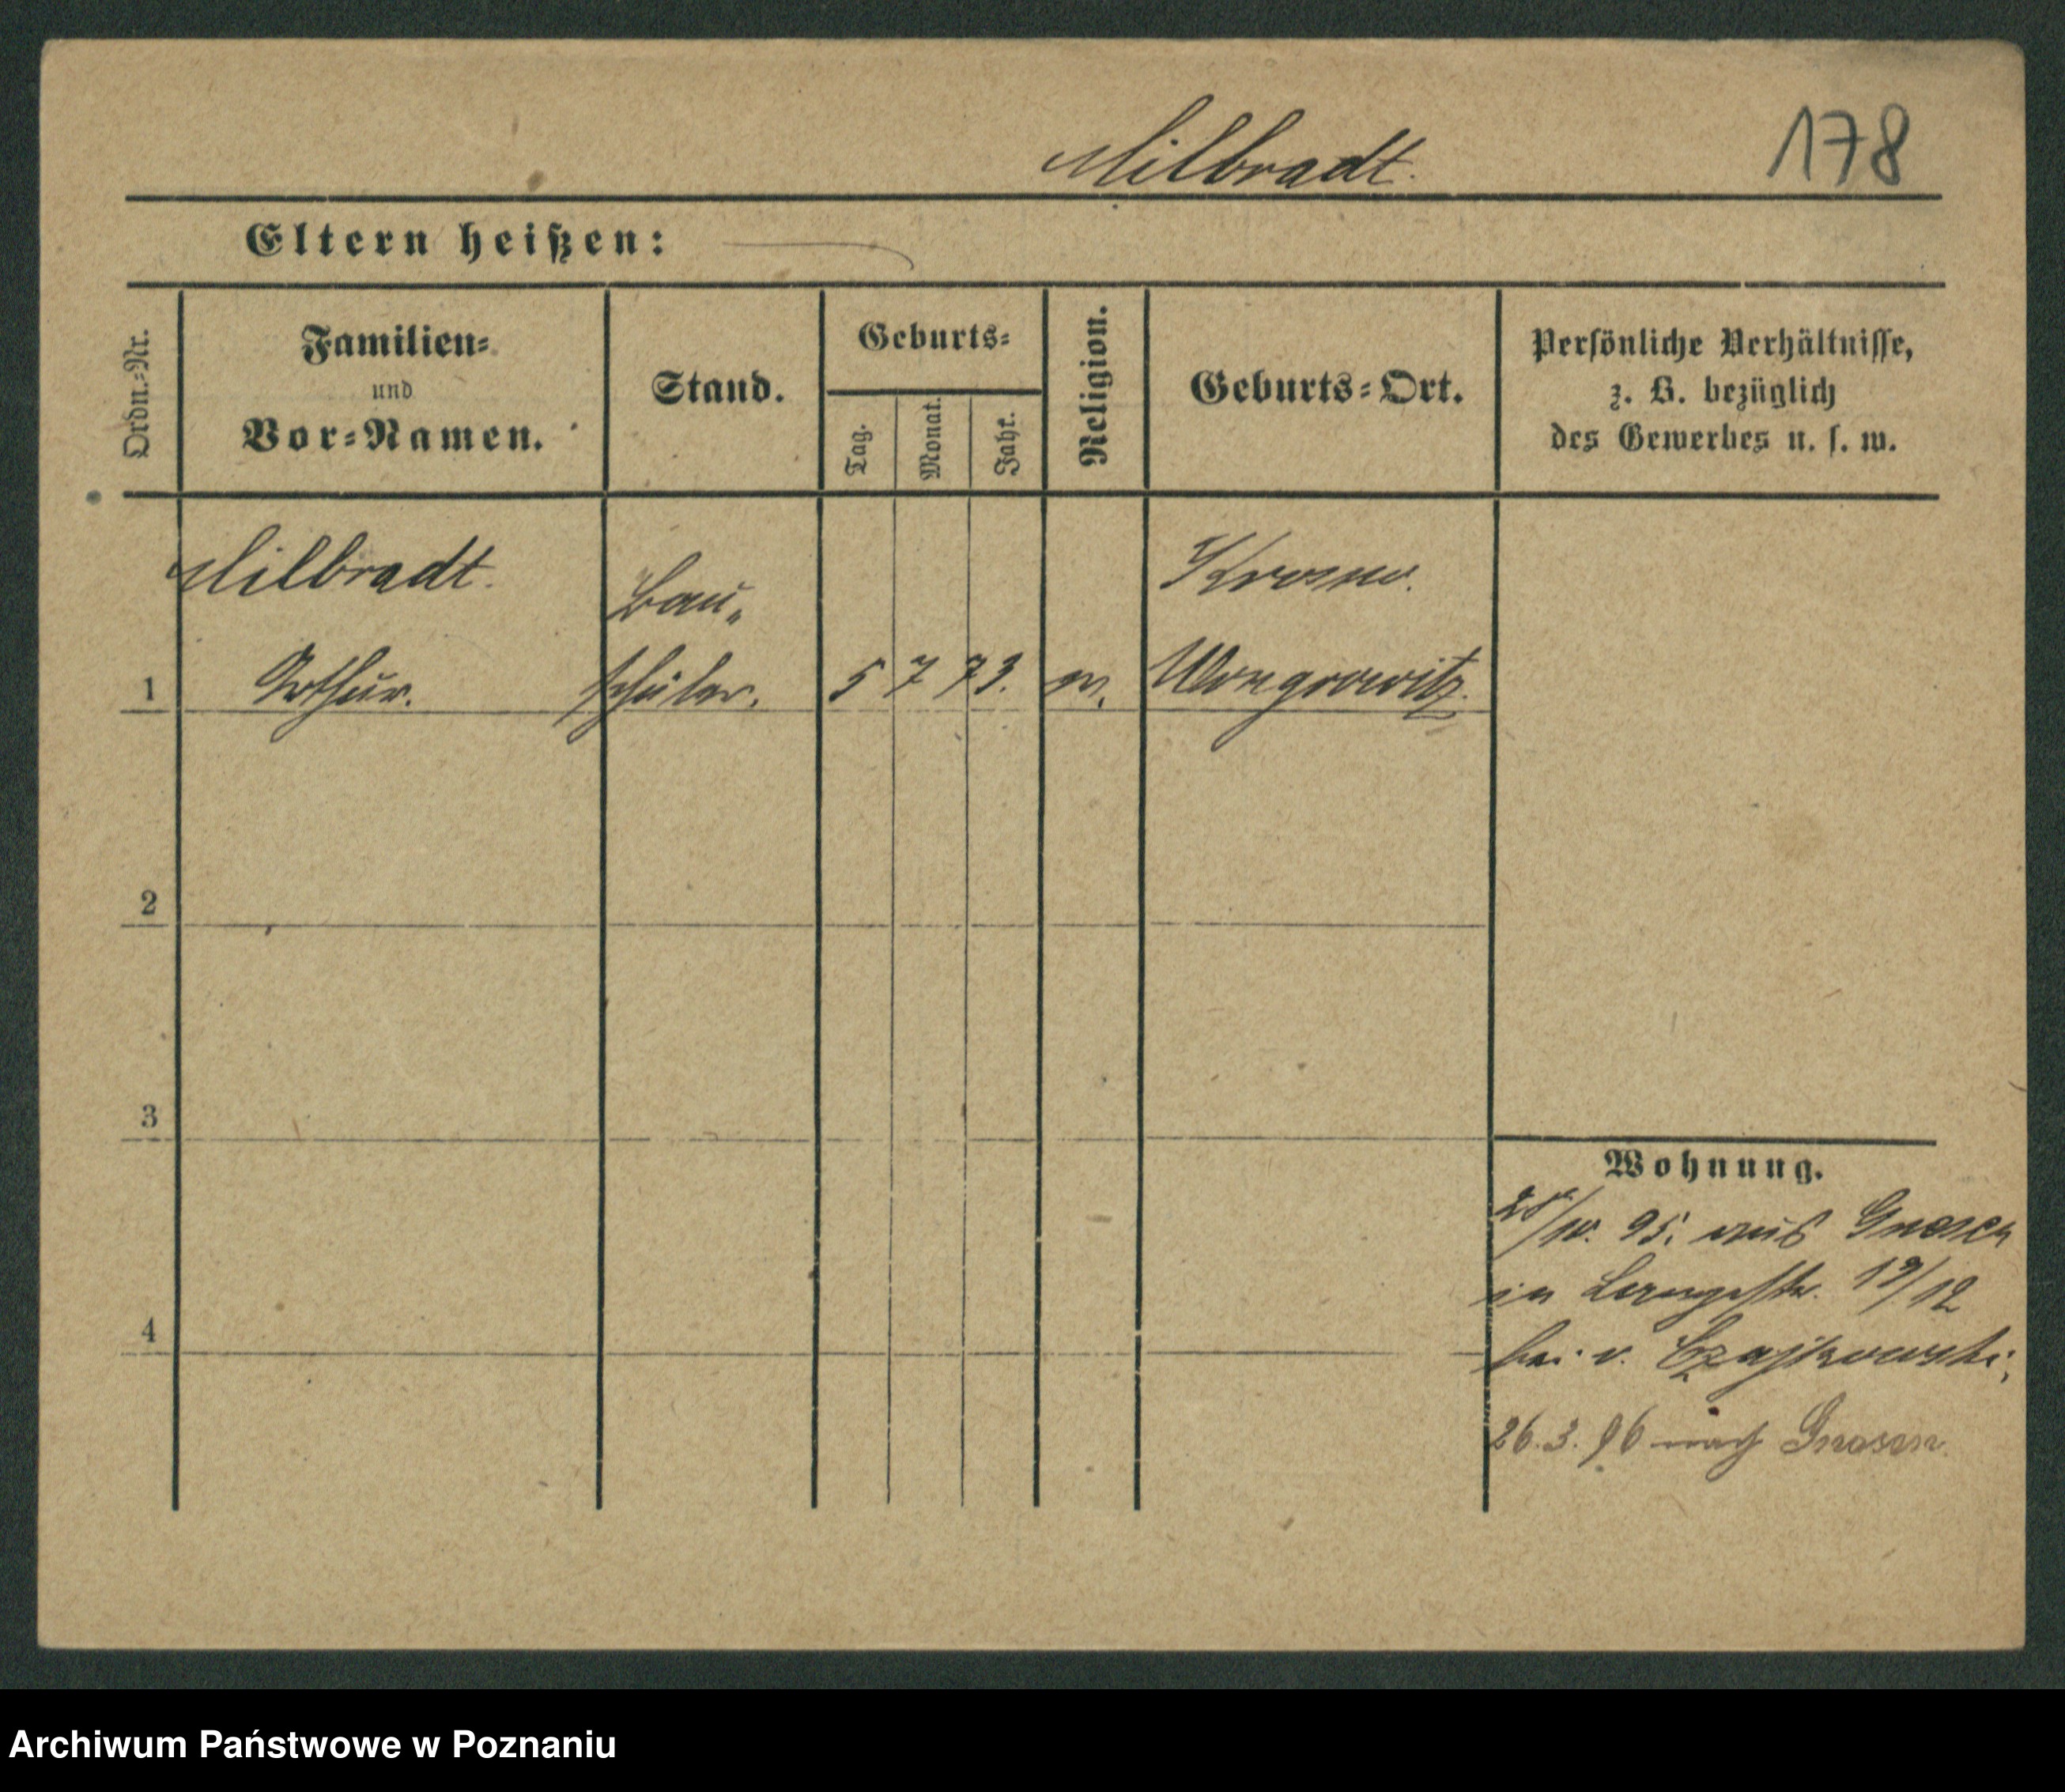 Milbradt.
178
Eltern heißen:
Ordn.-Nr.
Familien-
und
Vor-Namen.
Stand.
Geburts-
Tag.
Monat.
Jahr.
Religion.
Geburts-Ort.
Persönliche Verhältnisse,
z. B. bezüglich
des Gewerbes u. s. w.
Milbradt.
Arthur.
Bau-
schüler.
1
5 7 73.
Krosno.
Wongrowitz.
2
3
4
Wohnung.
/10. 95. aus Gnesen
in Langestr. 19/12
bei v. Czajkowski;
26.3.96 nach Gnesen.
Archiwum Państwowe w Poznaniu